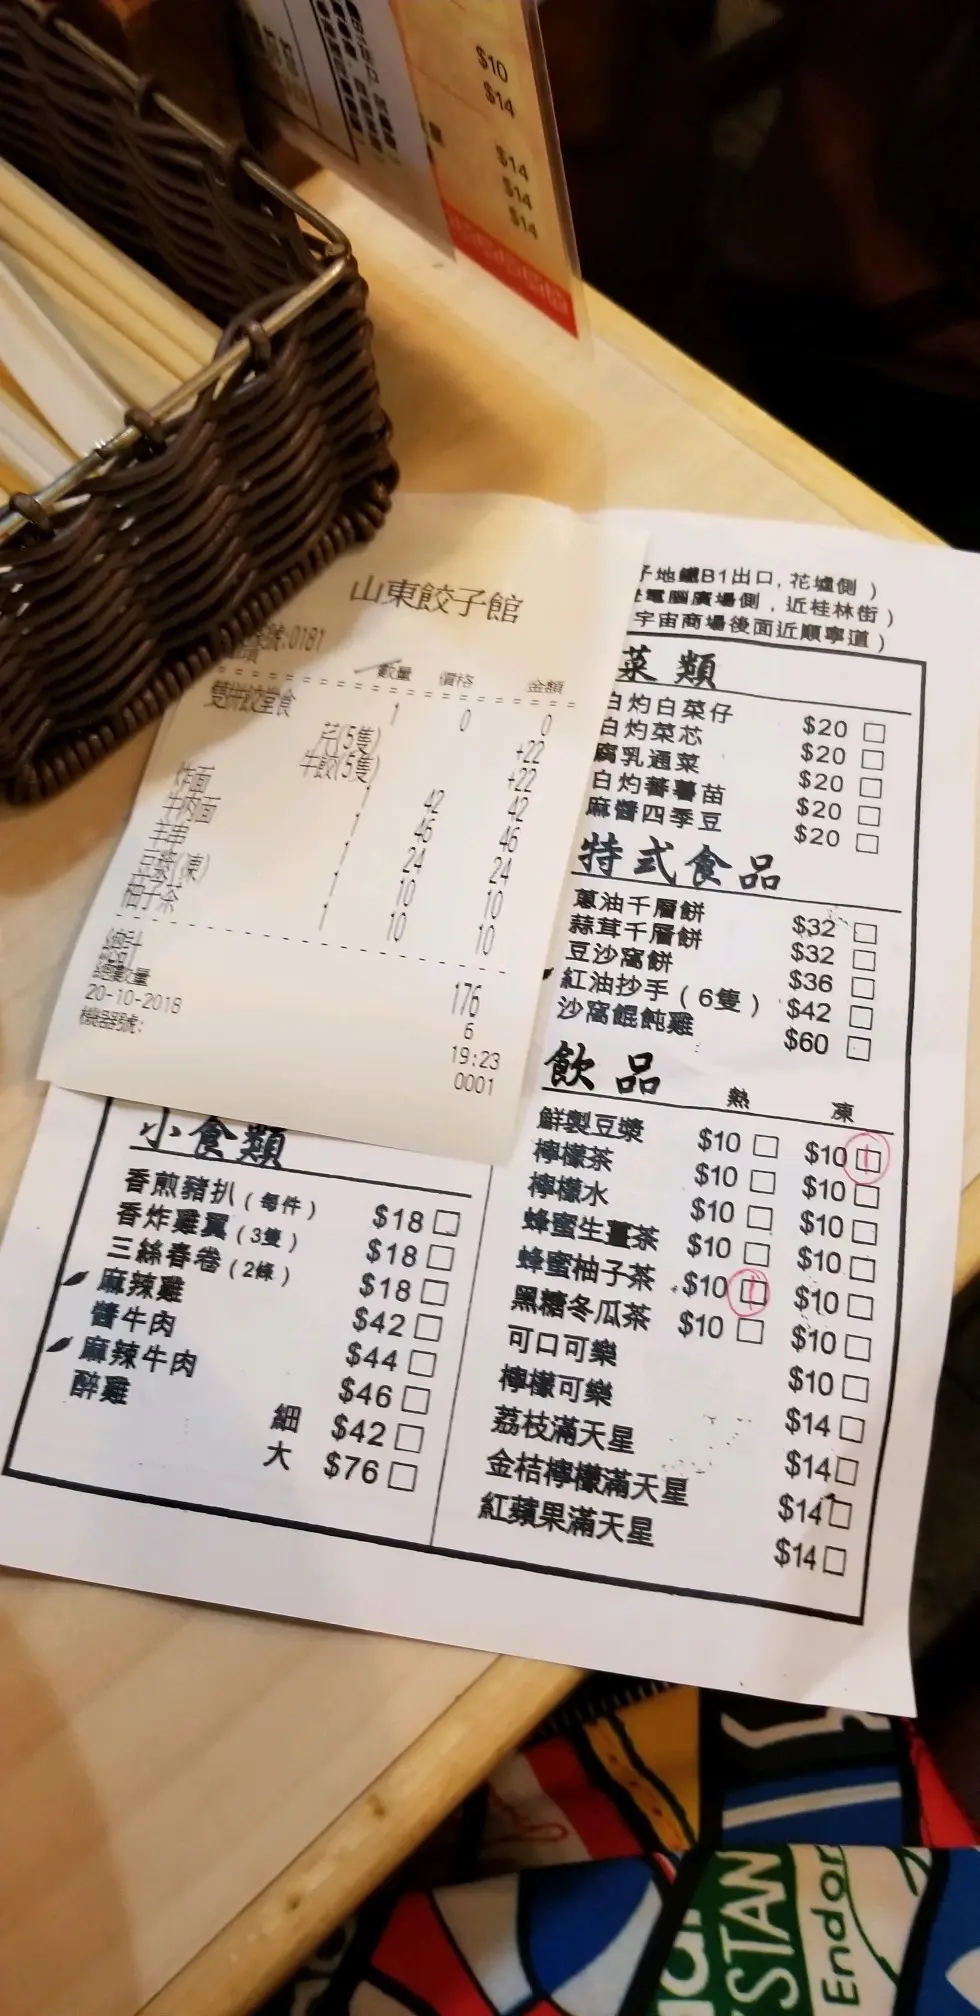 $10
$14
$14
$14
$14
山東餃子館
號:0181
數量 價格 金額
雙拼餃堂食 1 0 0
芹(5隻) +22
牛餃(5隻) +22
炸面 1 42 42
牛肉面 1 46 46
羊串 1 24 24
豆漿(凍) 1 10 10
柚子茶 1 10 10
總計 176
總數量 6
20-10-2018 19:23
機器號: 0001
子地鐵B1出口, 花墟側)
電腦廣場側, 近桂林街)
宇宙商場後面近順寧道)
菜類
白灼白菜仔 $20
白灼菜芯 $20
腐乳通菜 $20
白灼蕃薯苗 $20
麻醬四季豆 $20
特式食品
蔥油千層餅 $32
蒜茸千層餅 $32
豆沙窩餅 $36
紅油抄手(6隻) $42
沙窩餛飩雞 $60
飲品
熱 凍
鮮製豆漿 $10 $10
檸檬茶 $10 $10
檸檬水 $10 $10
蜂蜜生薑茶 $10 $10
蜂蜜柚子茶 $10 $10
黑糖冬瓜茶 $10 $10
可口可樂 $10
檸檬可樂 $14
荔枝滿天星 $14
金桔檸檬滿天星 $14
紅蘋果滿天星 $14
小食類
香煎豬扒(每件) $18
香炸雞翼(3隻) $18
三絲春卷(2條) $18
麻辣雞 $42
醬牛肉 $44
麻辣牛肉 $46
醉雞 細 $42
大 $76
STAN
Endor